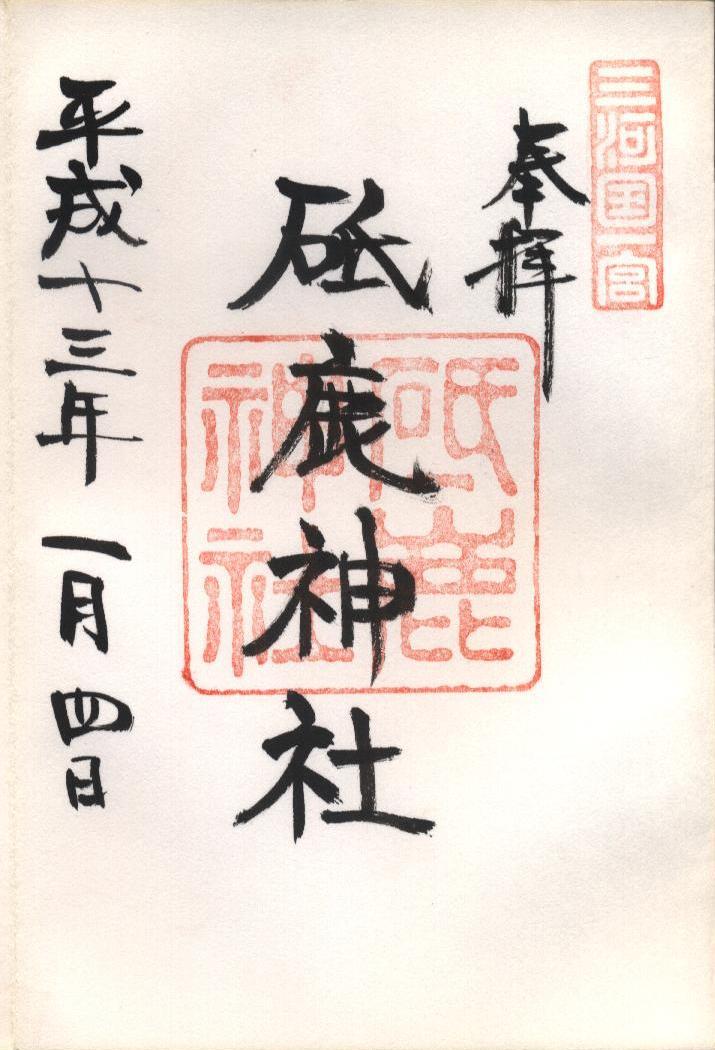 三河国一宮
奉拝
砥鹿神社
砥鹿神社
平成十三年 一月四日